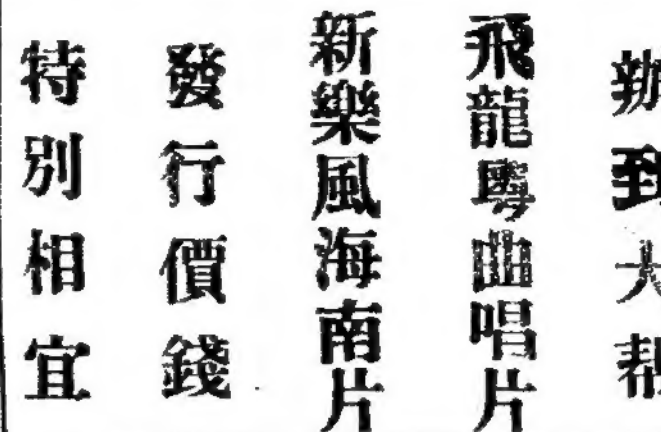 辦到大幫
飛龍粵曲唱片
新樂風海南片
發行價錢
特別相宜